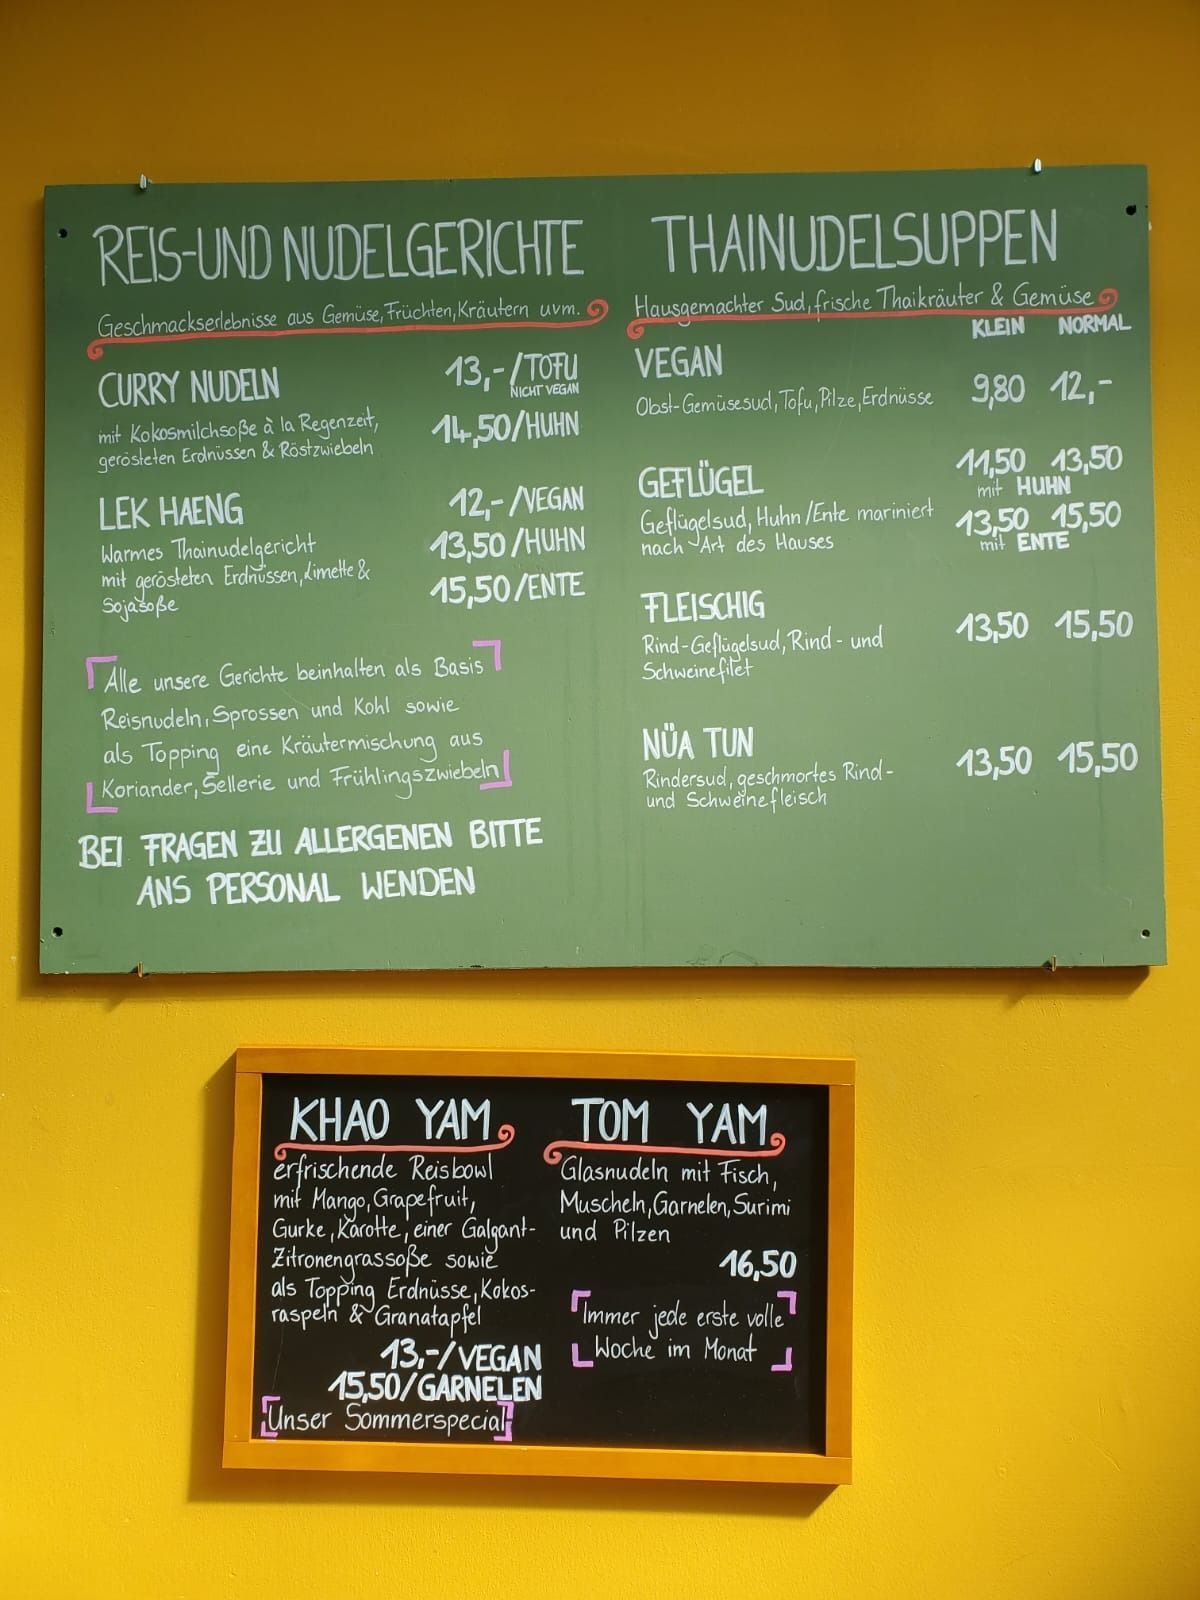 REIS-UND NUDELGERICHTE
Geschmackserlebnisse aus Gemüse, Früchten, Kräutern uvm.
CURRY NUDELN
13,-/TOFU
NICHT VEGAN
mit Kokosmilchsoße à la Regenzeit,
gerösteten Erdnüssen & Röstzwiebeln
14,50/HUHN
LEK HAENG
12,-/VEGAN
Warmes Thainudelgericht
mit gerösteten Erdnüssen, Limette &
Sojasoße
13,50/HUHN
15,50/ENTE
Alle unsere Gerichte beinhalten als Basis
Reisnudeln, Sprossen und Kohl sowie
als Topping eine Kräutermischung aus
Koriander, Sellerie und Frühlingszwiebeln
BEI FRAGEN ZU ALLERGENEN BITTE
ANS PERSONAL WENDEN
THAINUDELSUPPEN
Hausgemachter Sud, frische Thaikräuter & Gemüse
KLEIN NORMAL
VEGAN
Obst-Gemüsesud, Tofu, Pilze, Erdnüsse
9,80 12,-
GEFLÜGEL
Geflügelsud, Huhn/Ente mariniert
nach Art des Hauses
11,50 13,50
mit HUHN
13,50 15,50
mit ENTE
FLEISCHIG
Rind-Geflügelsud, Rind- und
Schweinefilet
13,50 15,50
NÜA TUN
Rindersud, geschmortes Rind-
und Schweinefleisch
13,50 15,50
KHAO YAM
erfrischende Reisbowl
mit Mango, Grapefruit,
Gurke, Karotte, einer Galgant-
Zitronengrassoße sowie
als Topping Erdnüsse, Kokos-
raspeln & Granatapfel
13,-/VEGAN
15,50/GARNELEN
Unser Sommerspecial
TOM YAM
Glasnudeln mit Fisch,
Muscheln, Garnelen, Surimi
und Pilzen
16,50
Immer jede erste volle
Woche im Monat